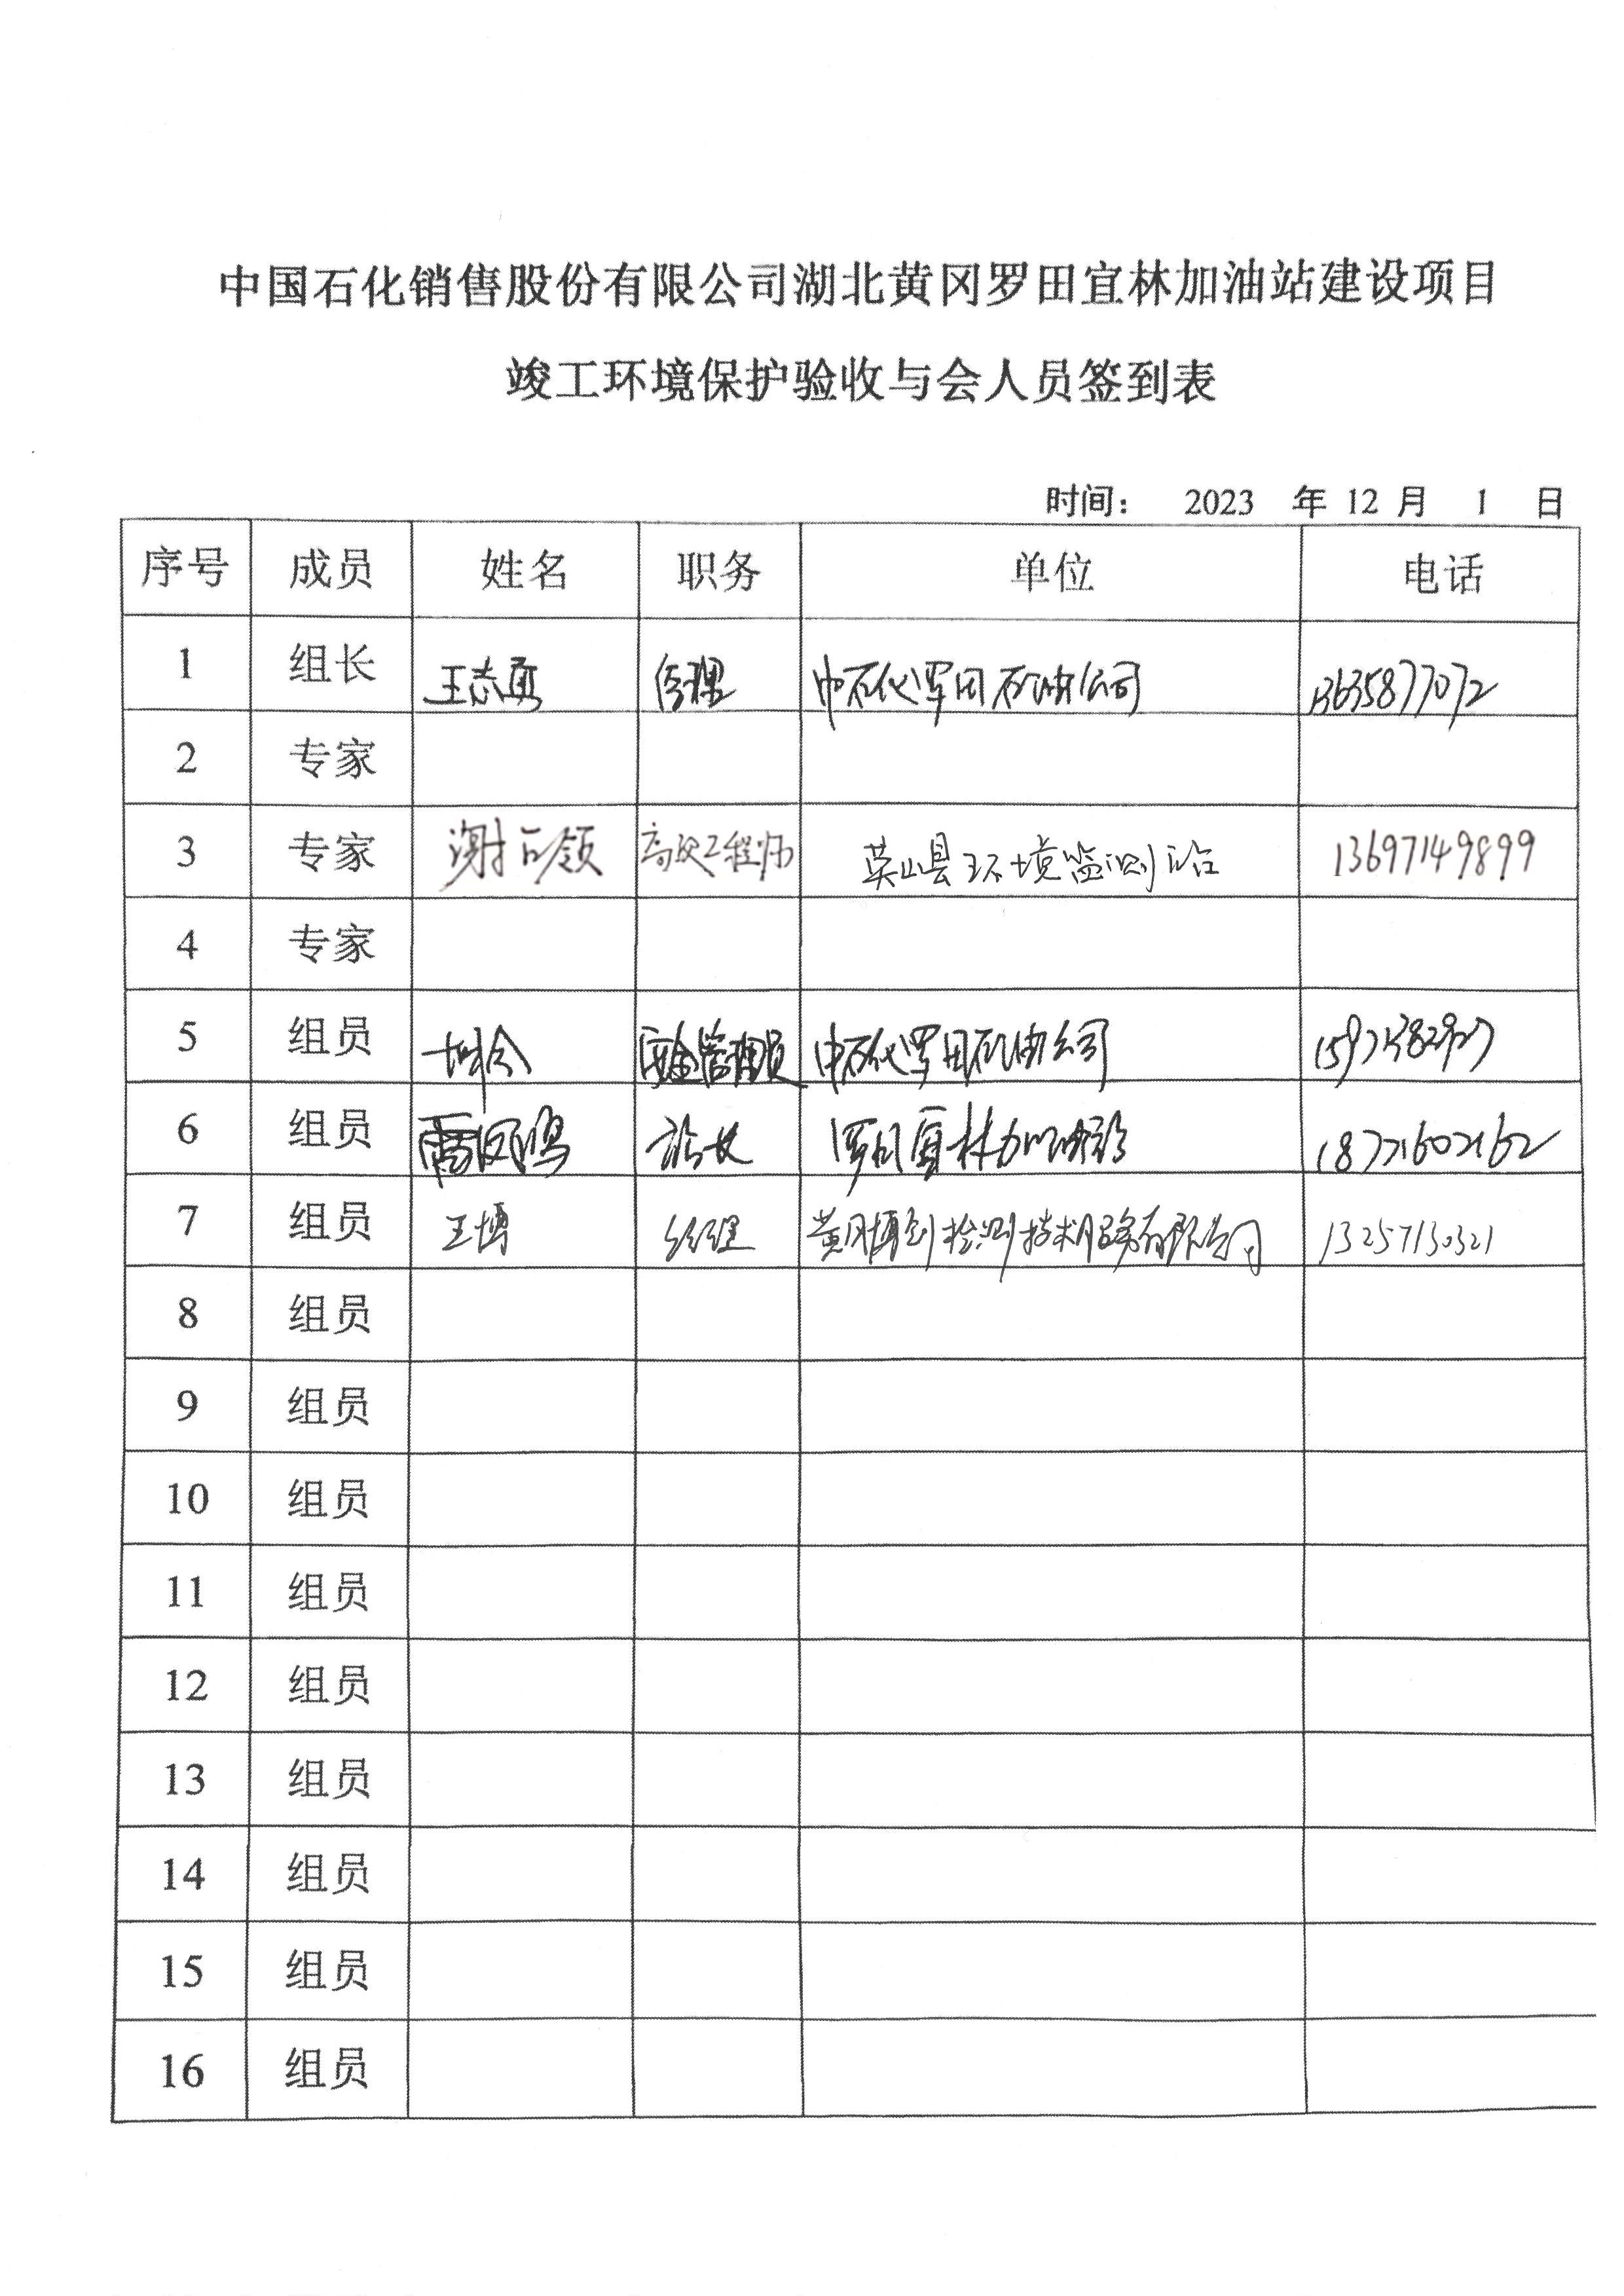 中国石化销售股份有限公司湖北黄冈罗田宜林加油站建设项目
竣工环境保护验收与会人员签到表
时间： 2023 年 12 月 1 日
序号 成员 姓名 职务 单位 电话
1 组长 王志勇 经理 中石化罗田石油公司 13635877072
2 专家
3 专家 谢 领 高级工程师 英山县环境监测站 13697149899
4 专家
5 组员 安全管理员 中石化罗田石油公司
6 组员 雷 鸣 站长 罗田宜林加油站 18771602162
7 组员 王博 经理 黄冈博创检测技术服务有限公司 13257130321
8 组员
9 组员
10 组员
11 组员
12 组员
13 组员
14 组员
15 组员
16 组员